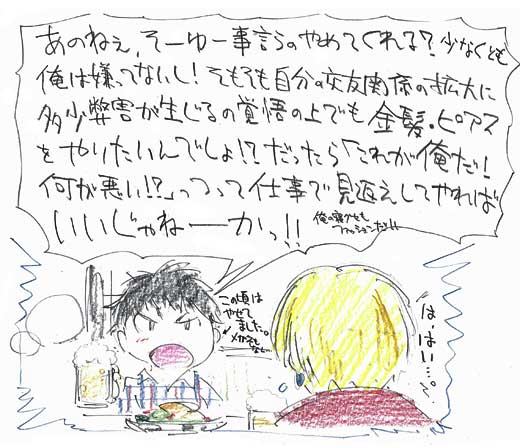 あのねぇ、そーゆー事言うのやめてくれる?少なくとも
俺は嫌ってないし!そもそも自分の交友関係の拡大に
多少弊害が生じるの覚悟の上でも金髪・ピアス
をやりたいんでしょ!?だったら「これが俺だ!
何が悪い!?」っつって仕事で見返えしてやれば
いいじゃねーかっ!!
俺の寝グセも
ファッションだ!!
この頃は
やせて
ました。
メガネも
なし…
は、はい…。